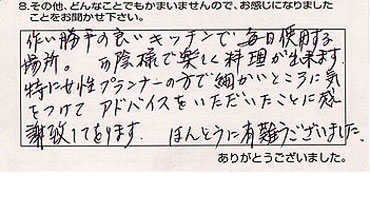 8.その他、どんなことでもかまいませんので、お感じになりました
ことをお聞かせ下さい。
作い勝手の良いキッチンで 毎日使用する
場所。 お陰様で楽しく料理が出来ます。
特に女性プランナーの方で細かいところに気
をつけて アドバイスをいただいたことに感
謝致しております。 ほんとうに有難うございました。
ありがとうございました。